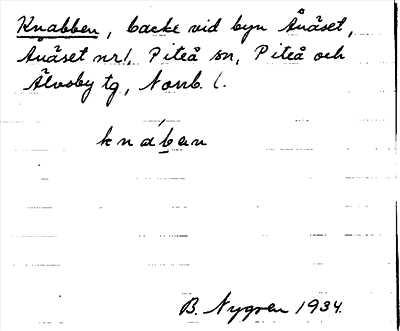 Knabben, backe vid byn Ånäset,
Ånäset nr 1, Piteå sn, Piteå och
Älvsby tg, Norrb. l.
knában
B. Nygren 1934.